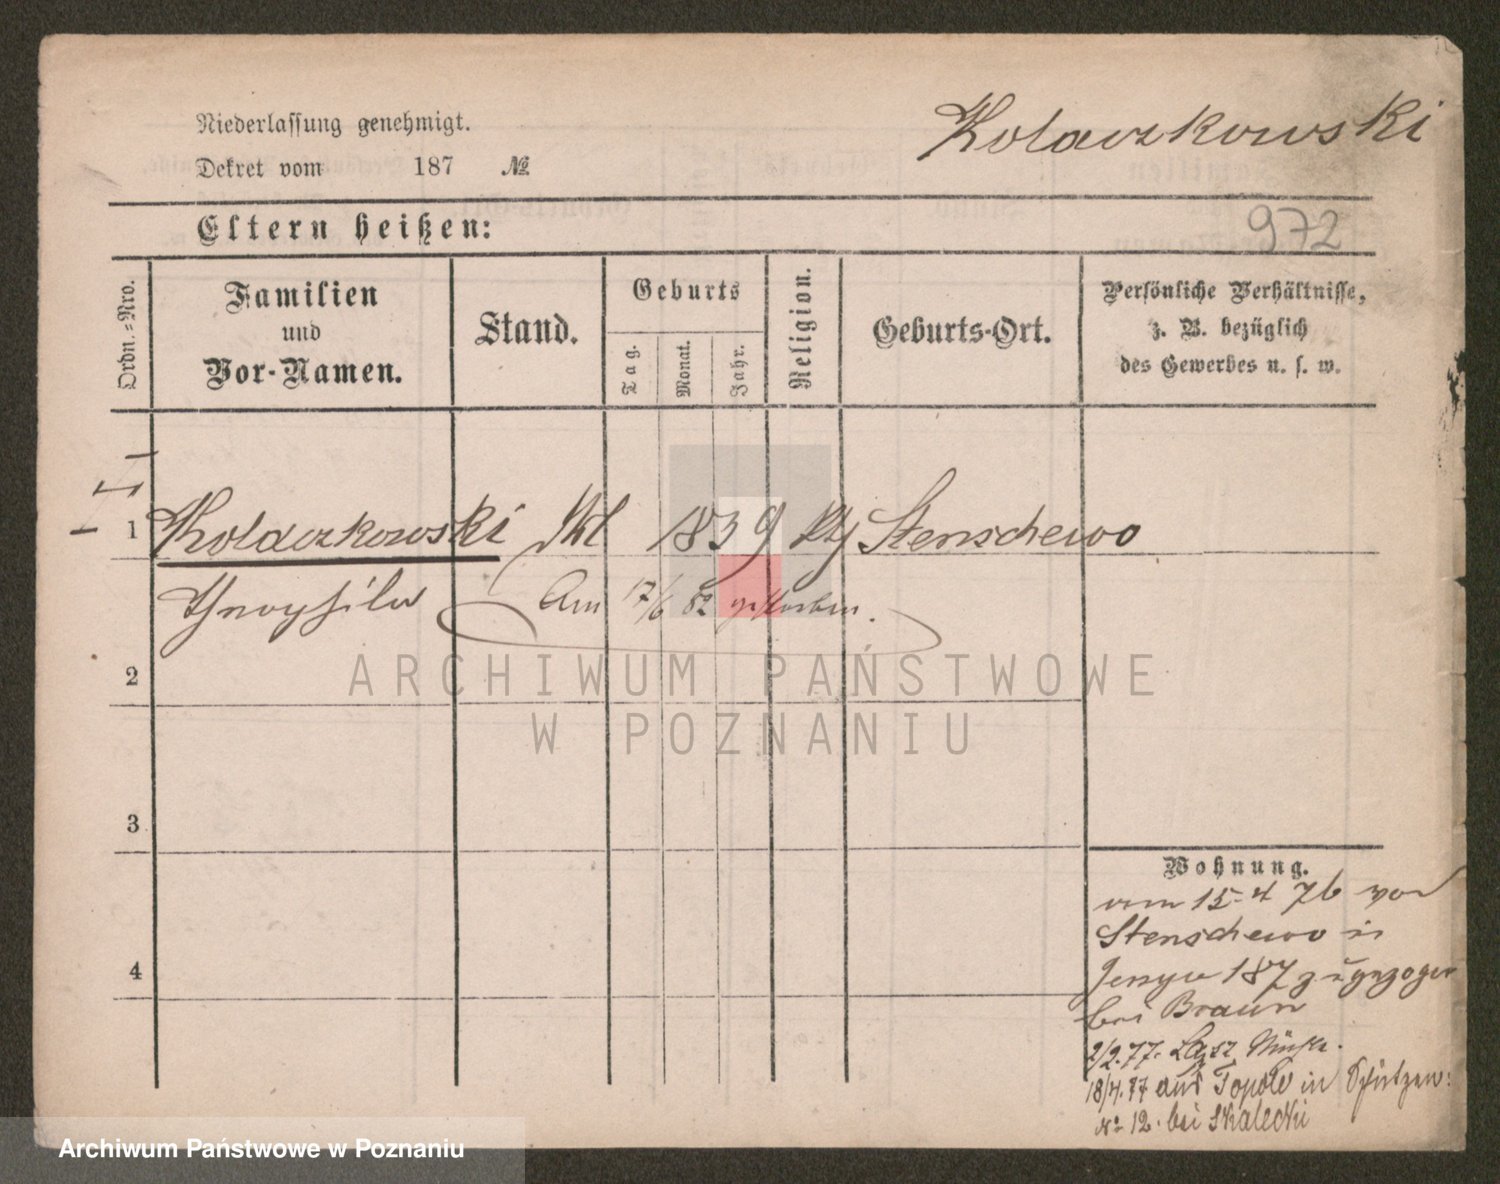 Kolaczkowski
Niederlassung genehmigt.
Dekret vom 187 №
Eltern heißen:
972
Ordn.-Nro.
Familien
und
Vor-Namen.
Stand.
Geburts
Tag.
Monat.
Jahr.
Religion.
Geburts-Ort.
Persönliche Verhältnisse,
z. B. bezüglich
des Gewerbes u. s. w.
1 Kolaczkowski 1839 Stenschewo
Am 17/6 82 gestorben.
2
ARCHIWUM PAŃSTWOWE
W POZNANIU
3
4
Wohnung.
vom 15-4 76 von
Stenschewo in
187 zugezogen
bei Braun
2/2.77.
18/4.77 aus Topole in Schützen:
№ 12. bei Skalecki
Archiwum Państwowe w Poznaniu